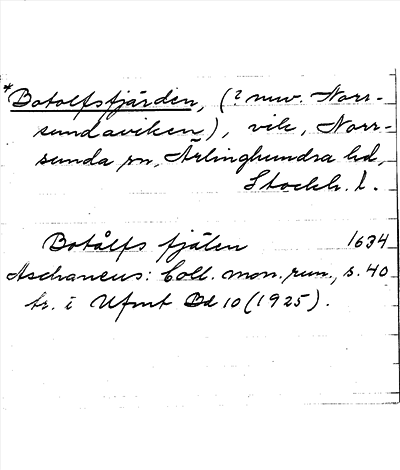 *Botolfsfjärden, (? nuv. Norr-
sundaviken), vik, Norr-
sunda sn, Ärlinghundra hd,
Stockh. l.
Botålfs fjälen 1634
Aschaneus: Coll. mon. run., s. 40
tr. i Ufmt Bd 10 (1925).